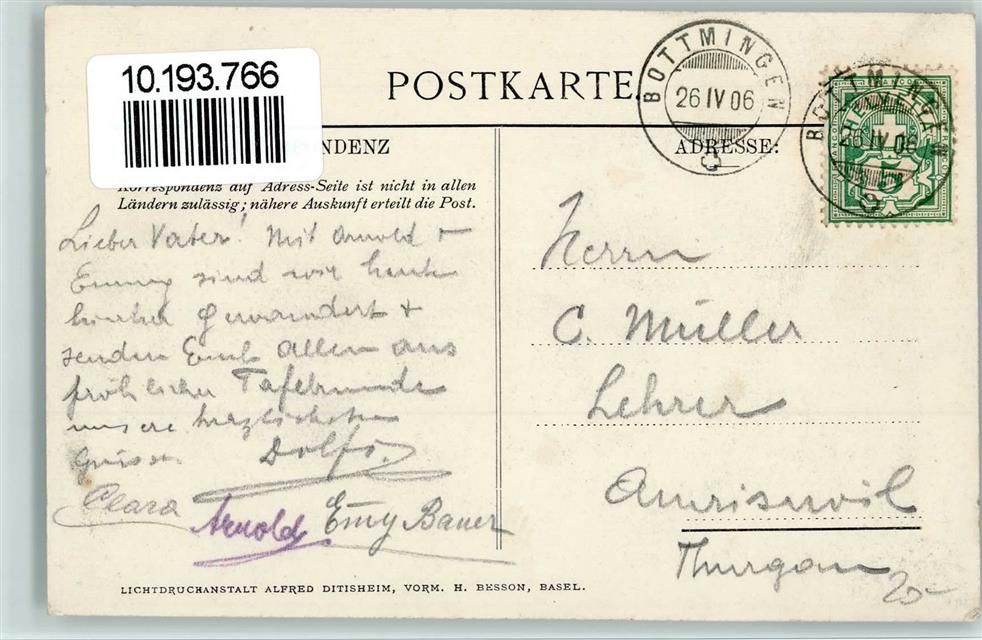 10.193.766
POSTKARTE.
BOTTMINGEN
26 IV 06
BOTTMINGEN
26 IV 06
HELVETIA
5
NDENZ
ADRESSE:
Korrespondenz auf Adress-Seite ist nicht in allen
Ländern zulässig; nähere Auskunft erteilt die Post.
Lieber Vater! Mit Arnold +
Emmy sind wir heute
hierher gewandert +
senden Euch allen aus
fröhlicher Tafelrunde
unsere herzlichsten
Grüsse. Dolfi.
Clara
Arnold Emy Bauer
Herrn
C. Müller
Lehrer
Amriswil
Thurgau
20-
LICHTDRUCKANSTALT ALFRED DITISHEIM, VORM. H. BESSON, BASEL.